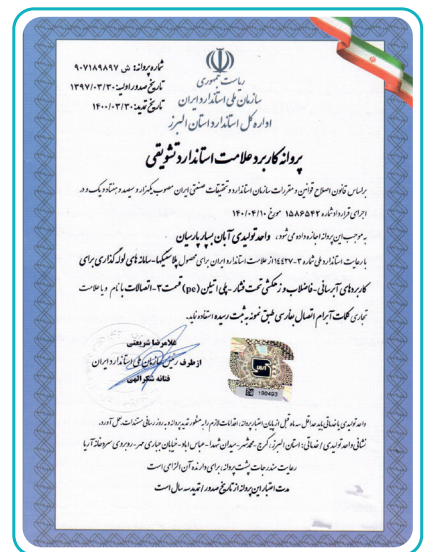 شماره پروانه: ش ۹۰۷۱۸۹۸۹۷
تاریخ صدور اولیه: ۱۳۹۷/۰۳/۳۰
تاریخ تمدید: ۱۴۰۰/۰۳/۳۰
ریاست جمهوری
سازمان ملی استاندارد ایران
اداره کل استاندارد استان البرز
پروانه کاربرد علامت استاندارد تشویقی
براساس قانون اصلاح قوانین و مقررات سازمان استاندارد و تحقیقات صنعتی ایران مصوب یکهزار و سیصد و هفتاد و یک و در
اجرای قرارداد شماره ۱۵۸۶۵۴۲ مورخ ۱۴۰۰/۰۴/۱۰
به موجب این پروانه اجازه داده می شود، واحد تولیدی آبان بسپار پارسیان
با رعایت استاندارد ملی شماره ۳-۱۴۴۲۷ از علامت استاندارد ایران برای محصول پلاستیکها-سامانه های لوله گذاری برای
کاربردهای آبرسانی-فاضلاب و زهکشی تحت فشار -پلی اتیلن (pe) قسمت ۳-اتصالات با نام و یا علامت
تجاری کلمات آبرام اتصال بفارسی طبق نمونه به ثبت رسیده استفاده نماید.
غلامرضا شریعتی
از طرف رئیس سازمان ملی استاندارد ایران
فتانه شکرالهی
190493
واحد تولیدی یا خدماتی باید حداقل سه ماه قبل از پایان اعتبار پروانه، اقدامات لازم را به منظور تمدید پروانه و به روز رسانی مستندات، بعمل آورد.
نشانی واحد تولیدی / خدماتی: استان البرز، کرج - محمدشهر-میدان شهدا- عباس آباد- خیابان جباری مهر-روبروی سردخانه آریا
رعایت مندرجات پشت پروانه، برای دارنده آن الزامی است
مدت اعتبار این پروانه از تاریخ صدور / تمدید سه سال است